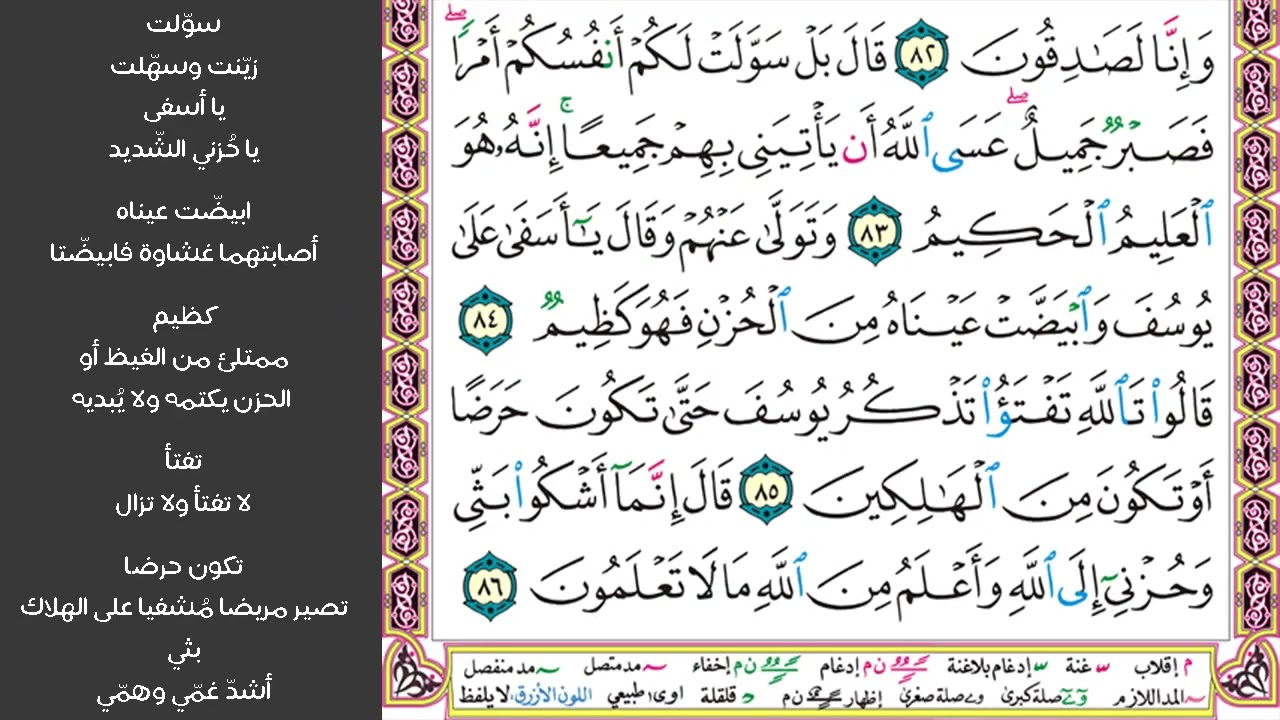 وَإِنَّا لَصَـٰدِقُونَ ٨٢ قَالَ بَلْ سَوَّلَتْ لَكُمْ أَنفُسُكُمْ أَمْرًا ۖ
فَصَبْرٌ جَمِيلٌ ۖ عَسَى ٱللَّهُ أَن يَأْتِيَنِى بِهِمْ جَمِيعًا ۚ إِنَّهُۥ هُوَ
ٱلْعَلِيمُ ٱلْحَكِيمُ ٨٣ وَتَوَلَّىٰ عَنْهُمْ وَقَالَ يَـٰٓأَسَفَىٰ عَلَىٰ
يُوسُفَ وَٱبْيَضَّتْ عَيْنَاهُ مِنَ ٱلْحُزْنِ فَهُوَ كَظِيمٌ ٨٤
قَالُوا۟ تَٱللَّهِ تَفْتَؤُا۟ تَذْكُرُ يُوسُفَ حَتَّىٰ تَكُونَ حَرَضًا
أَوْ تَكُونَ مِنَ ٱلْهَـٰلِكِينَ ٨٥ قَالَ إِنَّمَآ أَشْكُوا۟ بَثِّى
وَحُزْنِىٓ إِلَى ٱللَّهِ وَأَعْلَمُ مِنَ ٱللَّهِ مَا لَا تَعْلَمُونَ ٨٦
سوّلت
زيّنت وسهّلت
يا أسفى
يا حُزني الشّديد
ابيضّت عيناه
أصابتهما غشاوة فابيضّتا
كظيم
ممتلئ من الغيظ أو
الحزن يكتمه ولا يُبديه
تفتأ
لا تفتأ ولا تزال
تكون حرضا
تصير مريضا مُشفيا على الهلاك
بثي
أشدّ غمّي وهمّي
م إقلاب غنة إدغام بلاغنة ن م إدغام ن م إخفاء مد متصل مد منفصل
المد اللازم صلة كبرى صلة صغرى إظهار ن م قلقلة اوى طبيعي اللون الأزرق: لا يلفظ